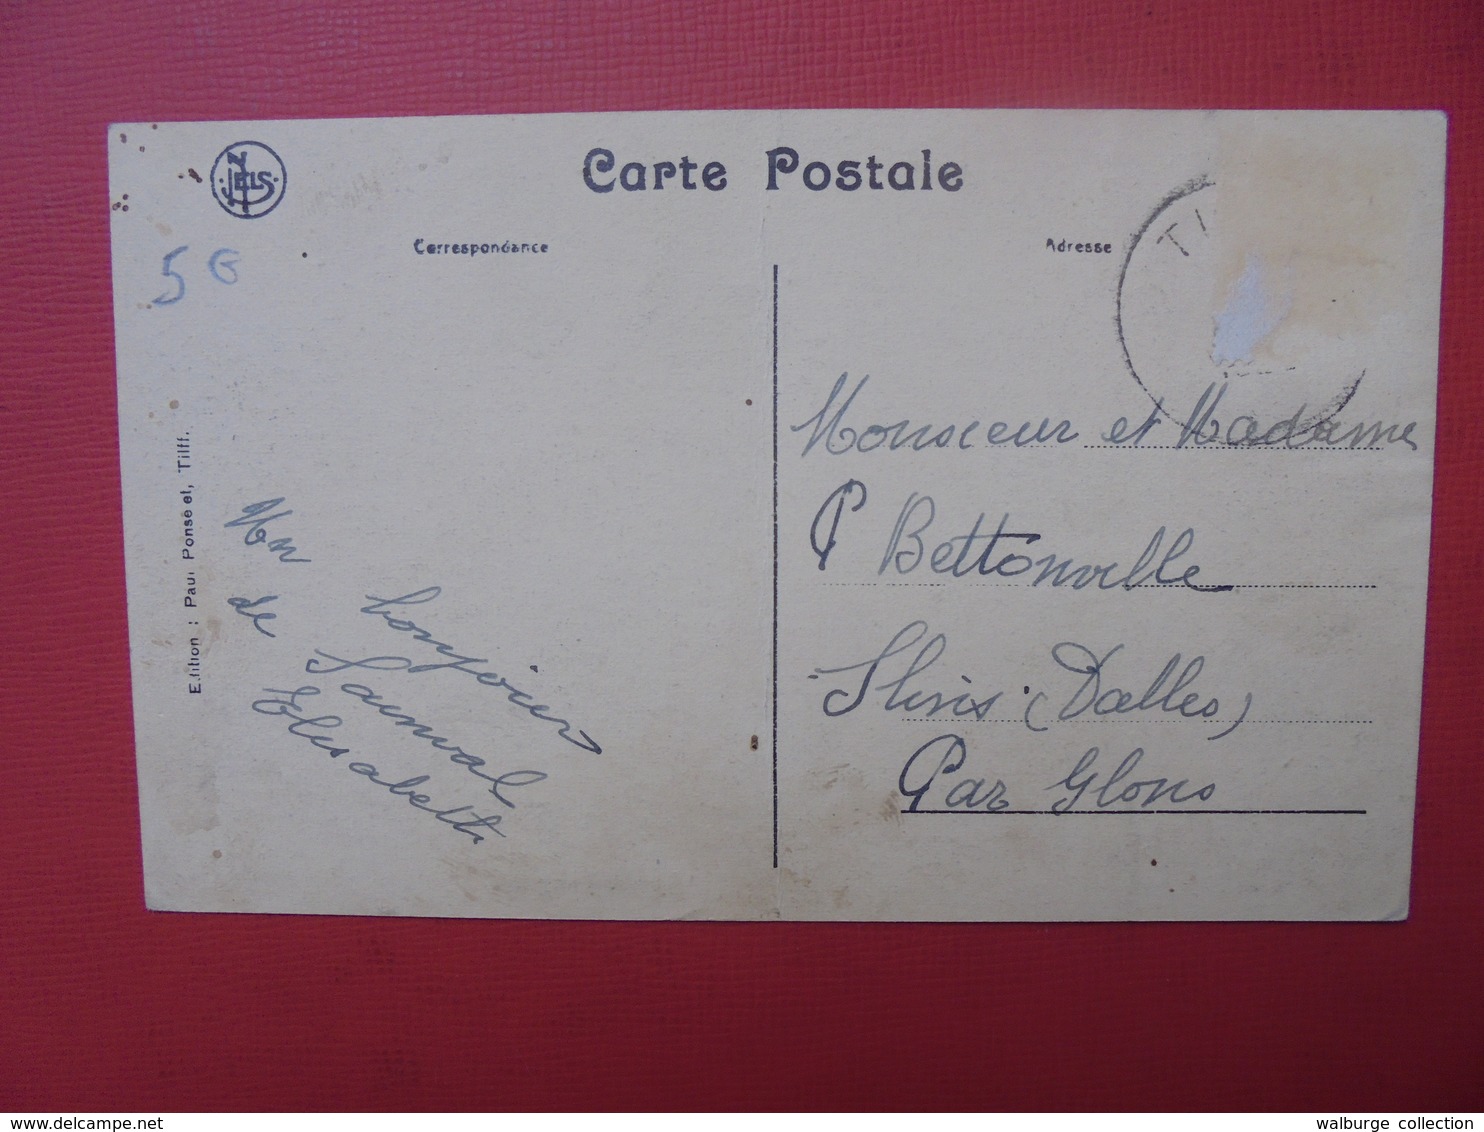 Carte Postale
NELS
Correspondance
Adresse
5 G
TI
Edition : Paul Ponselet, Tilff.
Un bonjour
de Sainval
Elisabeth
Monsieur et Madame
P Bettonville
Slins (Dalles)
Par Glons
delcampe.net
walburge collection